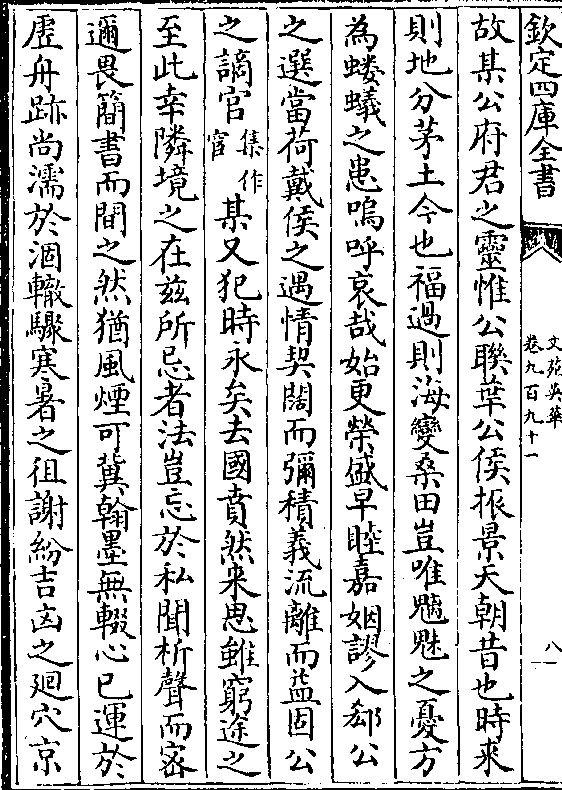 欽定四庫全書
文苑英華
卷九百九十一
八
故某公府君之靈惟公聯華公侯振景天朝昔也時来
則地分茅土今也福過則海變桑田豈唯魑魅之憂方
為螻蟻之患嗚呼哀哉始更榮盛早睦嘉姻謬入郄公
之選當荷戴侯之遇情契闊而彌積義流離而益固公
之謫官集作宦某又犯時永矣去國賁然来思雖窮途之
至此幸隣境之在兹所忌者法豈忘於私聞柝聲而密
邇畏簡書而間之然猶風煙可冀翰墨無輟心已運於
虚舟跡尚濡於涸轍驟寒暑之徂謝紛吉凶之廻穴京